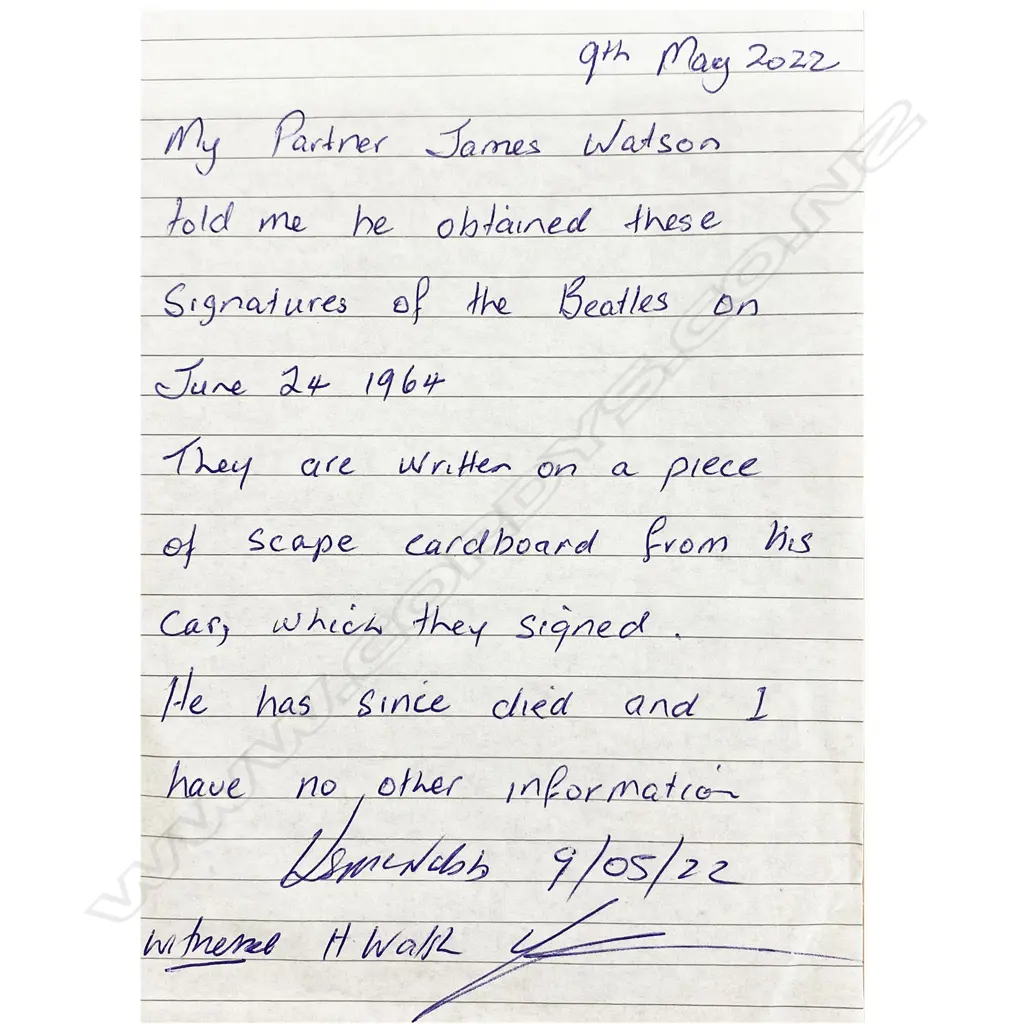 9th May 2022
My Partner James Watson
told me he obtained these
Signatures of the Beatles on
June 24 1964
They are written on a piece
of scape cardboard from his
car, which they signed.
He has since died and I
have no other information
9/05/22
witness H Walsh
WWW.CORDYS.CO.NZ